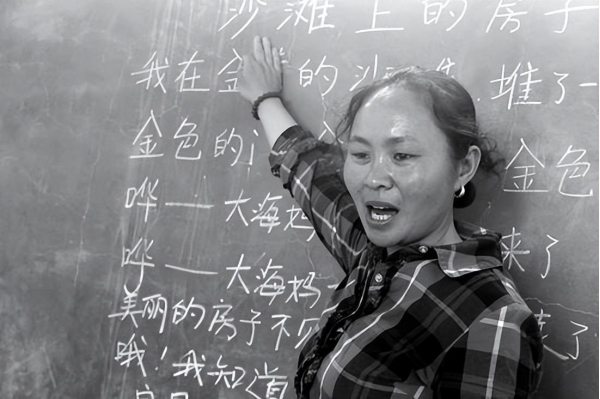 沙滩上的房子
我在金 的沙 堆了一
金色的 金色
哗——大海妈 来了
哗——大海妈 了
美丽的房子不见
哦！我知道